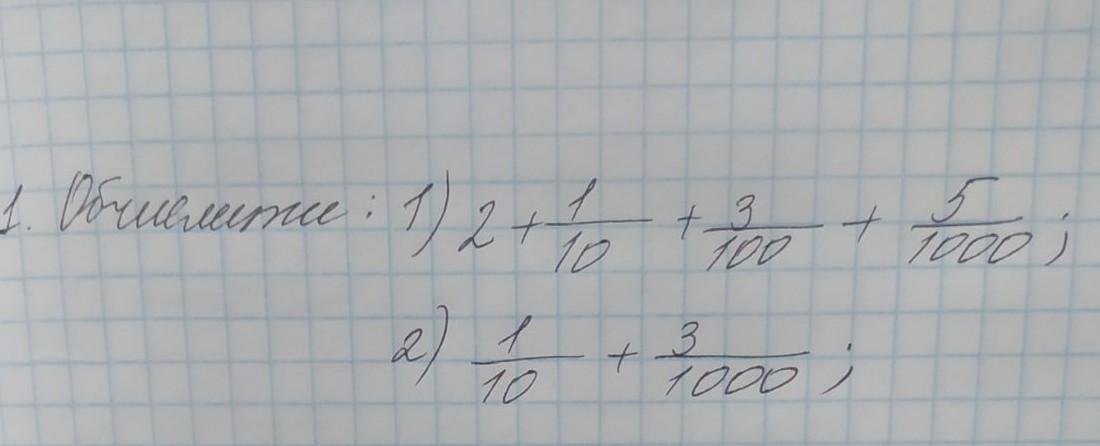 1. Обчислити: 1) 2 + 1/10 + 3/100 + 5/1000 ;
2) 1/10 + 3/1000 ;